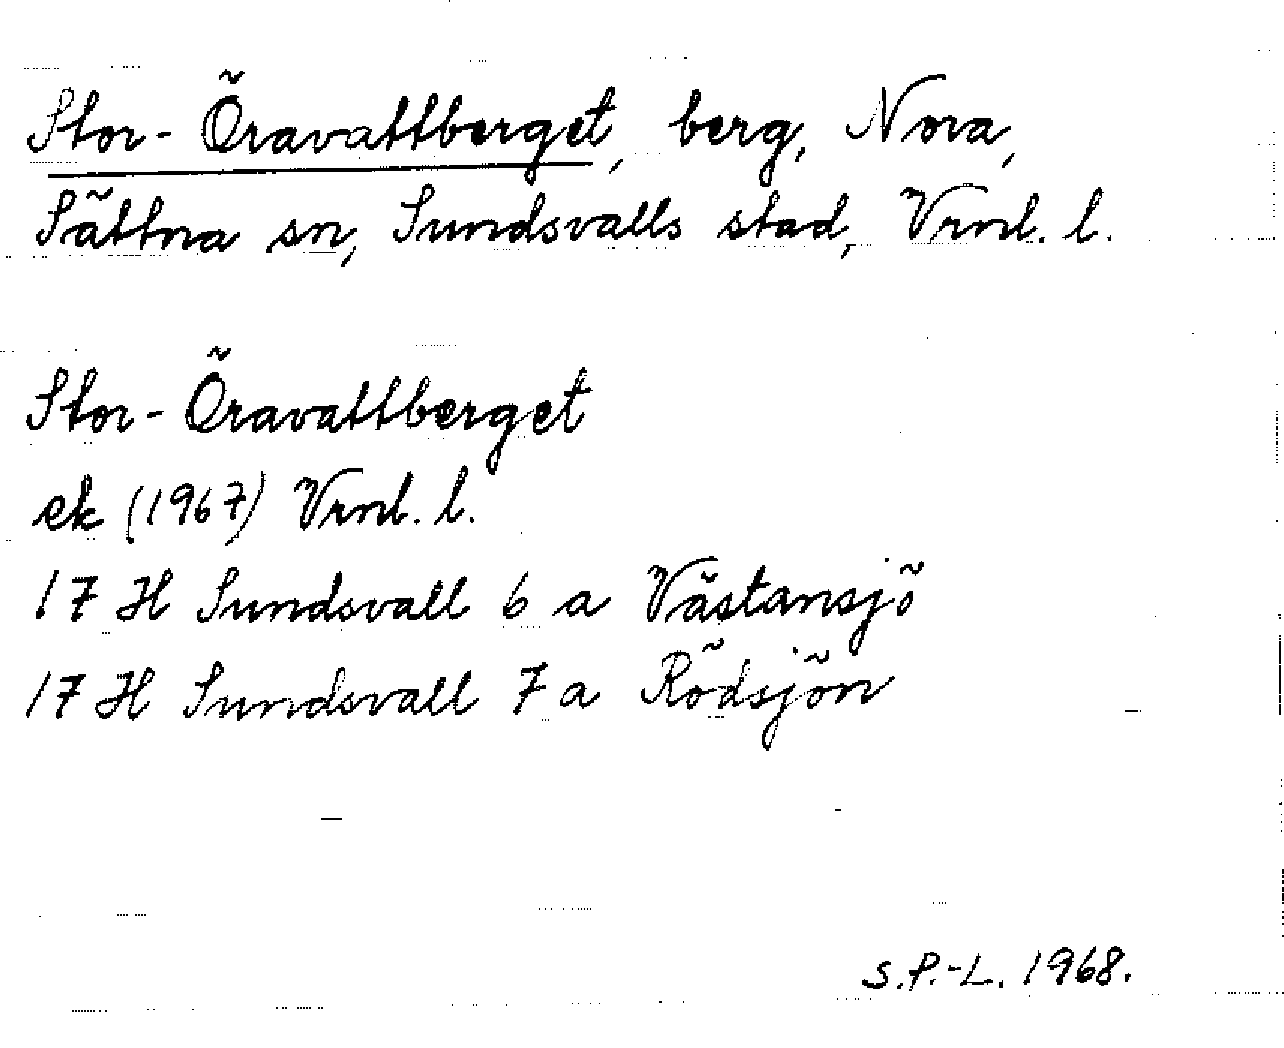 Stor-Öravattberget, berg, Nora,
Sättna sn, Sundsvalls stad, Vrnl. l.
Stor-Öravattberget
ek (1967) Vrnl. l.
17 H Sundsvall 6 a Västansjö
17 H Sundsvall 7 a Rödsjön
S.P.-L. 1968.